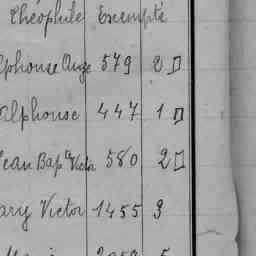 Théophile Exempté
Alphonse Ange 579 2
Alphonse 447 1
Jean Bapte Victor 580 2
ary Victor 1455 3